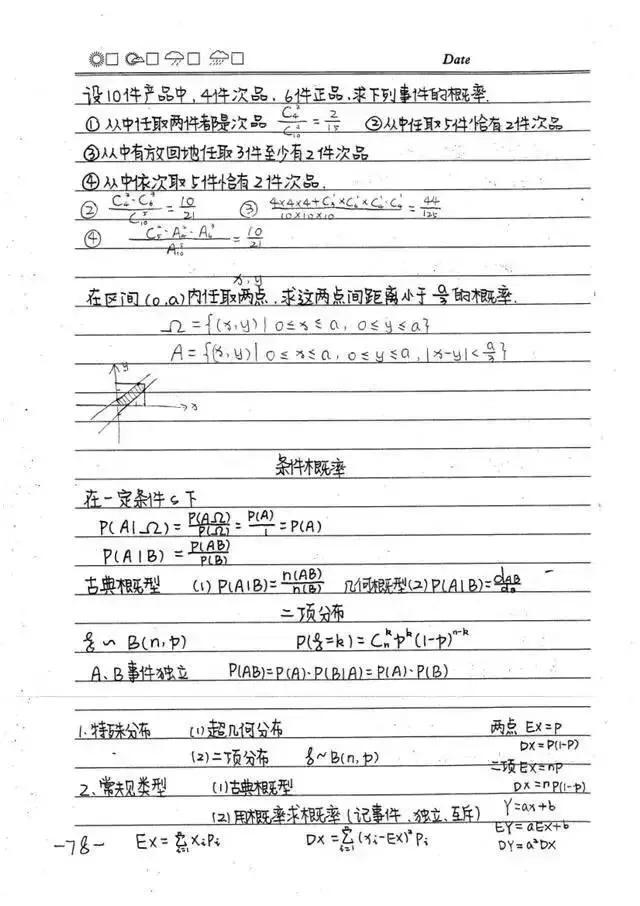 Date
设10件产品中,4件次品,6件正品,求下列事件的概率.
① 从中任取两件都是次品 C₄²/C₁₀² = 2/15 ②从中任取5件恰有2件次品
③从中有放回地任取3件至少有2件次品
④从中依次取5件恰有2件次品.
② C₄²·C₆³/C₁₀⁵ = 10/21 ③ 4×4×4+C₃²×C₄¹×C₄¹·C₆¹/10×10×10 = 44/125
④ C₅²·A₄²·A₆³/A₁₀⁵ = 10/21
x,y
在区间(0,a)内任取两点,求这两点间距离小于 a/3 的概率.
Ω={(x,y)|0≤x≤a, 0≤y≤a}
A={(x,y)|0≤x≤a, 0≤y≤a, |x-y|<a/3}
y
x
条件概率
在一定条件 S 下
P(A|Ω)=P(AΩ)/P(Ω)=P(A)/1=P(A)
P(A|B)=P(AB)/P(B)
古典概型 (1) P(A|B)=n(AB)/n(B) 几何概型(2) P(A|B)=d_AB/d_B
二项分布
ξ~B(n,p) P(ξ=k)=Cₙᵏpᵏ(1-p)ⁿ⁻ᵏ
A、B事件独立 P(AB)=P(A)·P(B|A)=P(A)·P(B)
1.特殊分布 (1)超几何分布 两点 EX=P
DX=P(1-P)
(2)二项分布 ξ~B(n,p) 二项 EX=nP
2.常见类型 (1)古典概型 DX=nP(1-p)
(2)用概率求概率(记事件、独立、互斥) Y=ax+b
EY=aEX+b
-78- EX=∑ⁿᵢ₌₁xᵢPᵢ DX=∑ⁿᵢ₌₁(xᵢ-EX)²Pᵢ DY=a²DX